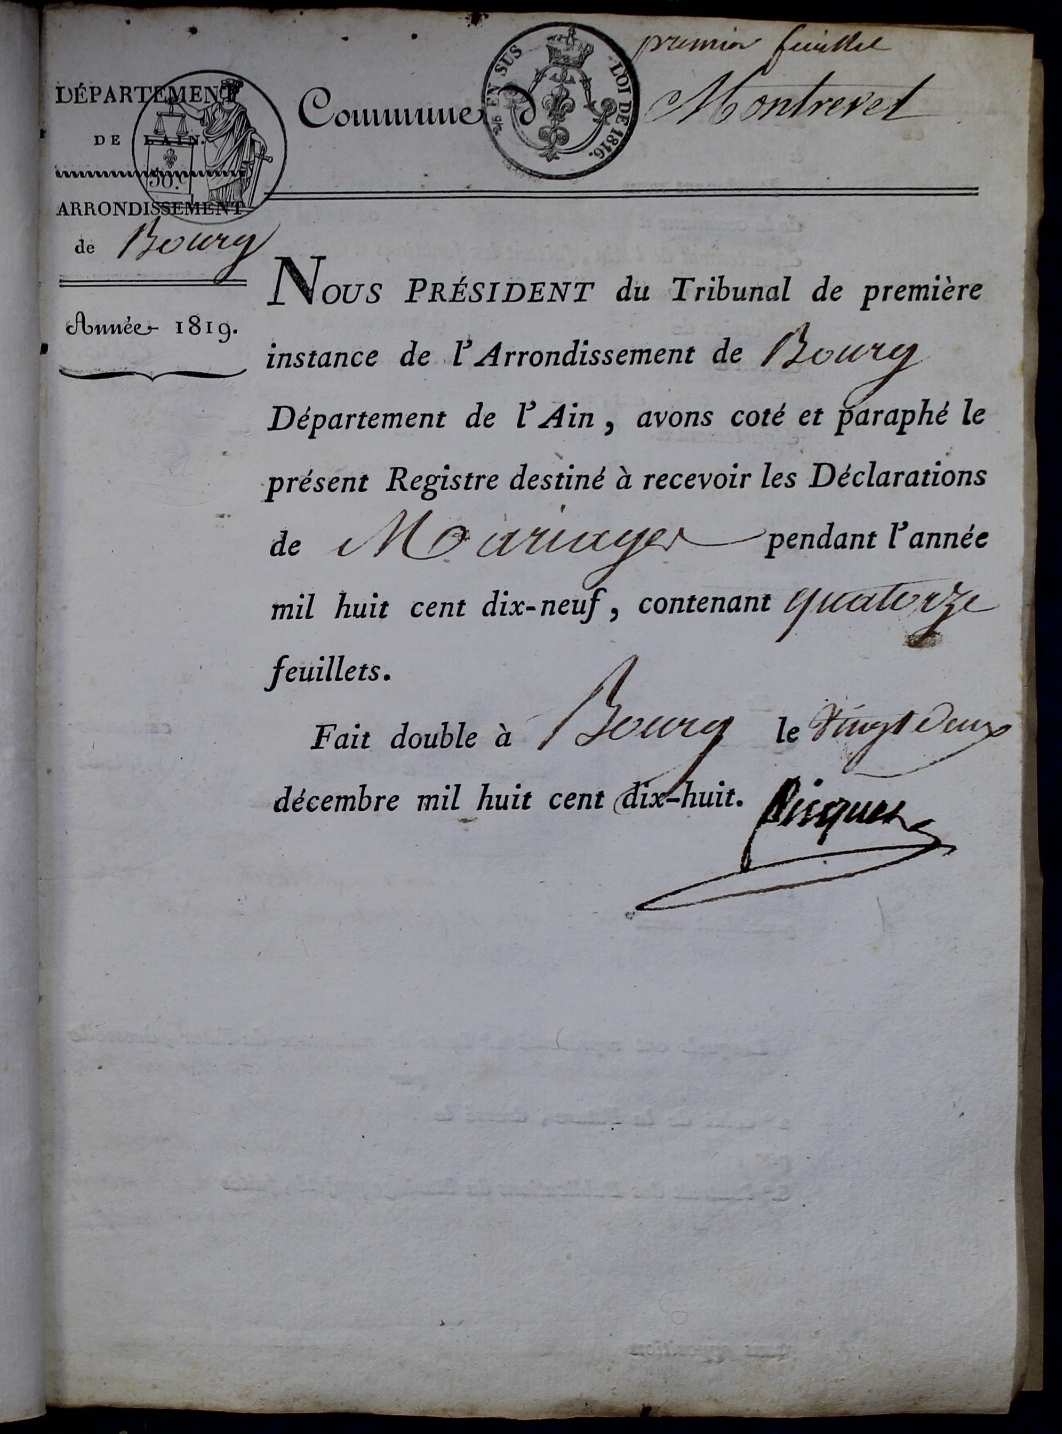 premier feuillet
DÉPARTEMENT
DE L'AIN.
50.
ARRONDISSEMENT
de Bourg
Année 1819.
Commune d
EN SUS
LOI DE 1816.
Montrevel
NOUS PRÉSIDENT du Tribunal de première
instance de l'Arrondissement de Bourg
Département de l'Ain, avons coté et paraphé le
présent Registre destiné à recevoir les Déclarations
de Mariages pendant l'année
mil huit cent dix-neuf, contenant quatorze
feuillets.
Fait double à Bourg le Vingt deux
décembre mil huit cent dix-huit.